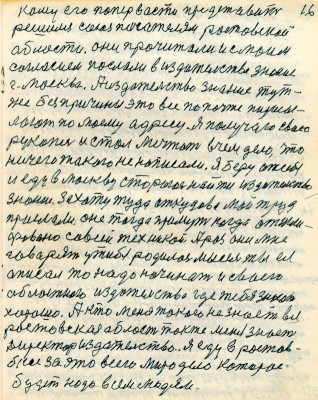 66
кому его поперваста представить
решил союз писателям ростовской
области, они прочитали и с моим
согласием послали в издательства знание
г. Москва. А издательство знание тут-
же без причины это все попочте присы-
лают по моему адресу. Я получаю свою
рукопис и стал мечтат в чем дело, что
ничего такого не написали. Я беру
и еду в Москву старшой найти издательство
знание. Захожу туда откудова мой труд
прислали, они тогда примут когда
совсей техникой. Араз они мне
говарят утибя родилас мысел ты ее
описал то надо начинат и своего
областного издательства где тебя знают
хорошо. А кто меня такого не знает вся
ростовская област также меня знает
директор издательство. Я еду в ростов-
за это всего мирадело которое
будет надо всем людям.